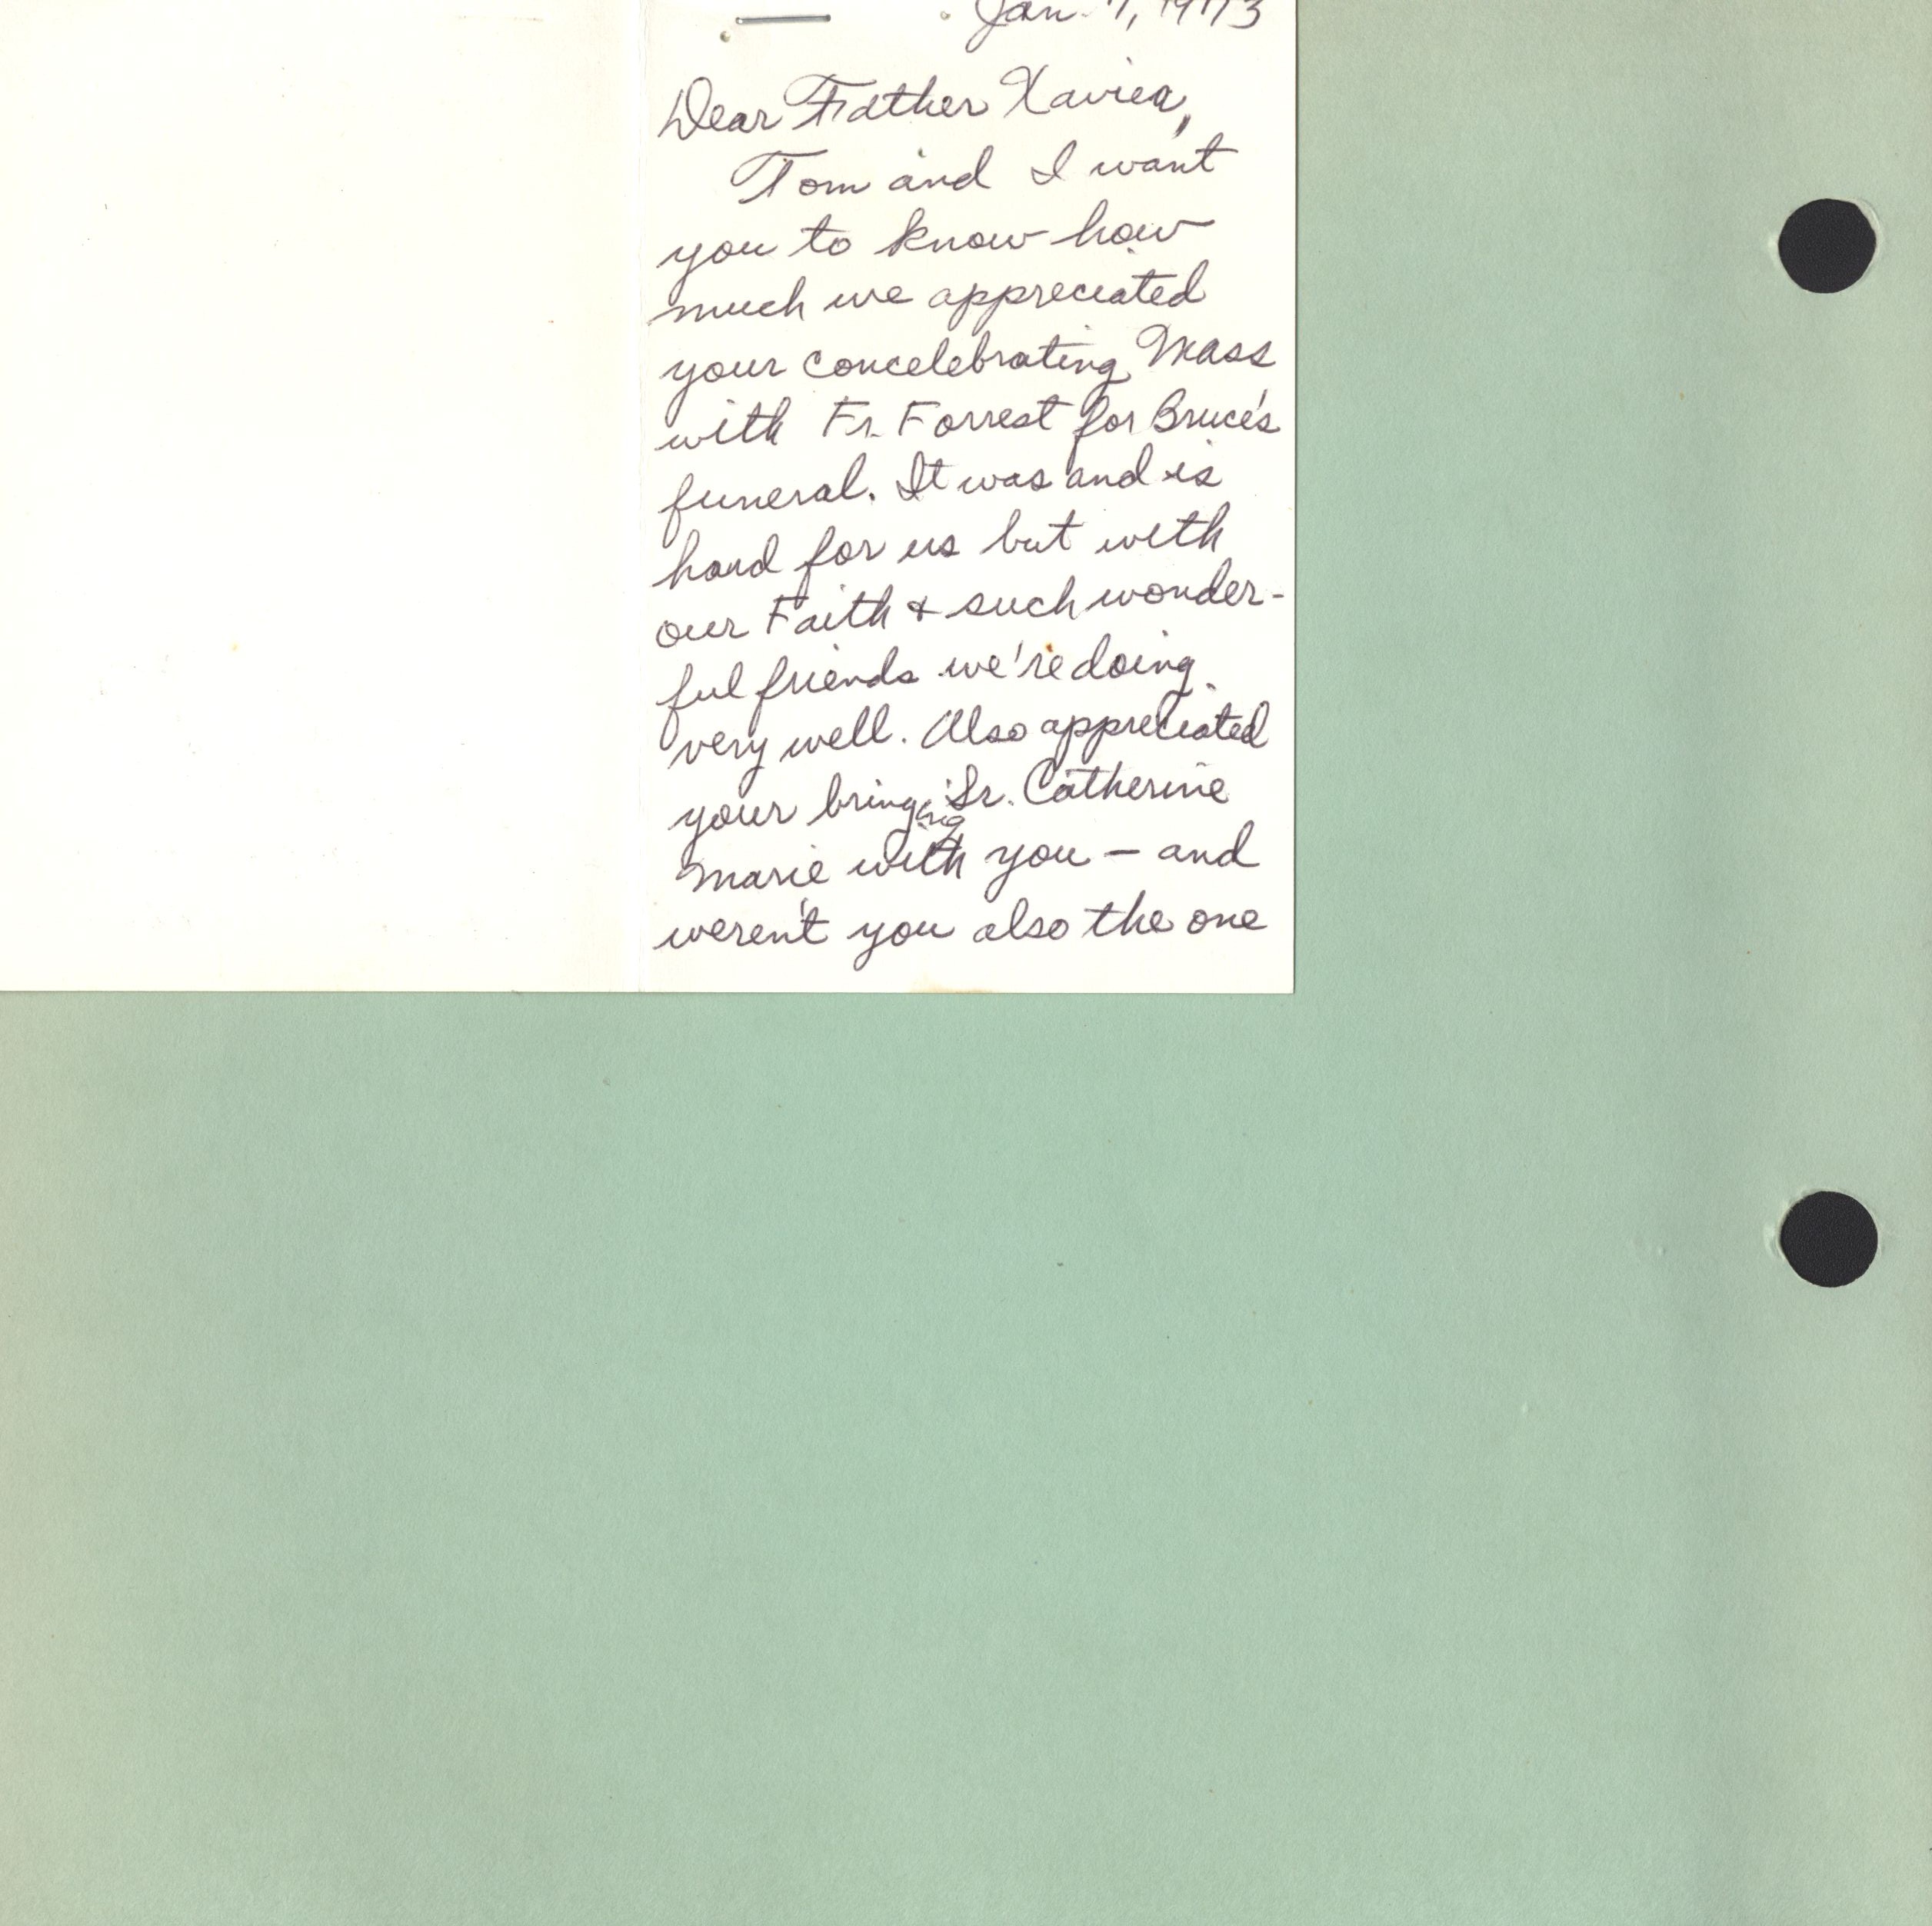 Jan. 7, 1973
Dear Father Xavier,
Tom and I want
you to know how
much we appreciated
your concelebrating Mass
with Fr. Forrest for Bruce's
funeral. It was and is
hard for us but with
our Faith + such wonder-
ful friends we're doing
very well. Also appreciated
your bringing Sr. Catherine
Marie with you — and
weren't you also the one